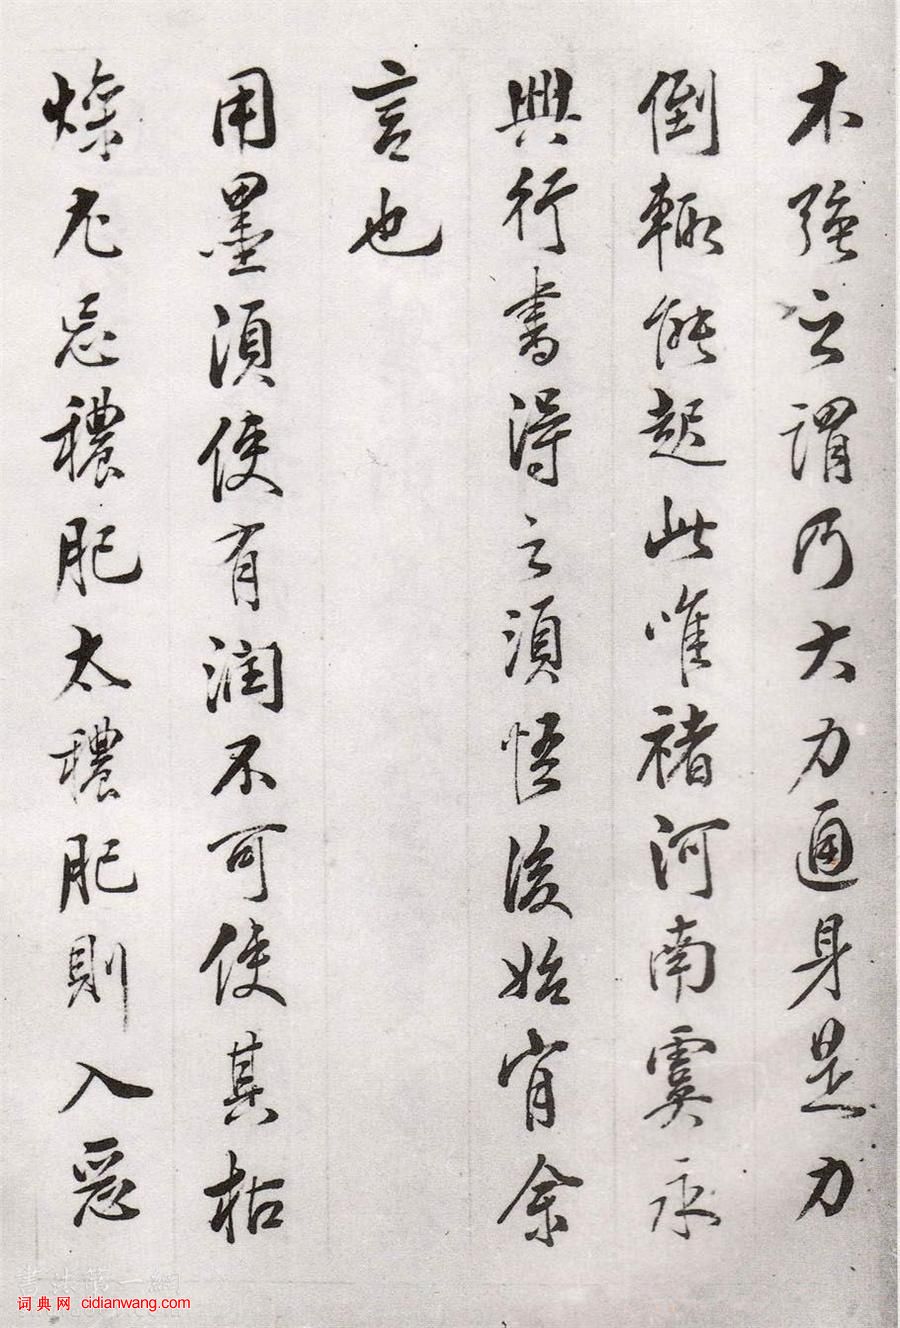 木強之謂乃大力通身是力
倒輒能起此唯褚河南虞永
興行書得之須悟後始肯余
言也
用墨須使有潤不可使其枯
燥尤忌穠肥太穠肥則入惡
词典网 cidianwang.com